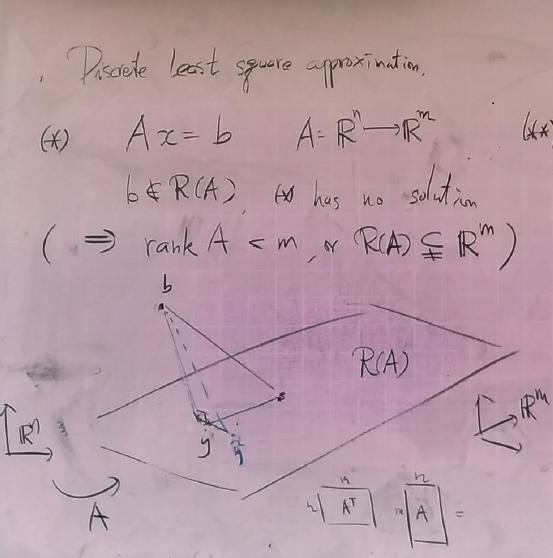 Discrete least square approximation.
(*) Ax = b A: ℝⁿ → ℝᵐ (**
b ∉ R(A), (*) has no solution
( ⇒ rank A < m, or R(A) ⊊ ℝᵐ )
b
R(A)
ℝⁿ
ℝᵐ
y ỹ
A
n m Aᵀ m n A =